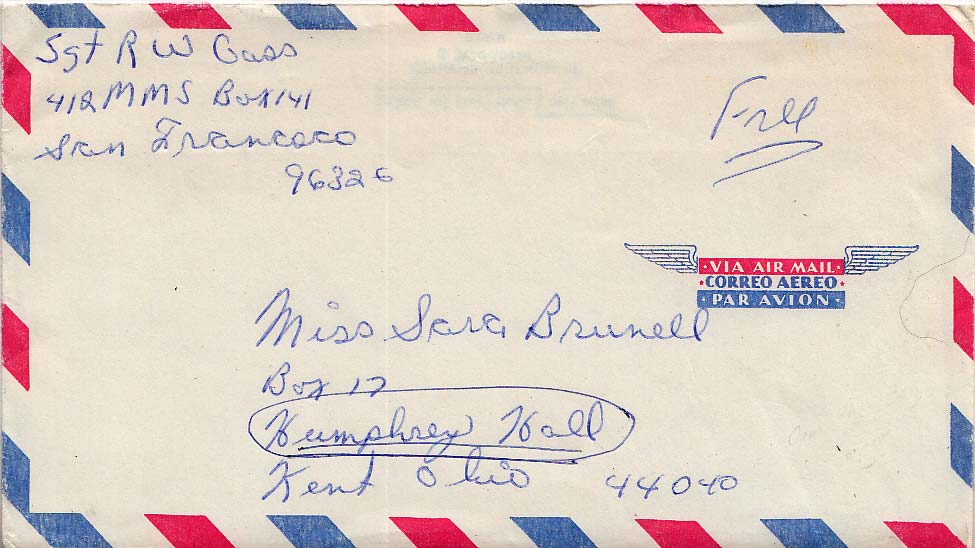 Sgt R W Gass
412 MMS Box 141
San Francisco
96326
Free
· VIA AIR MAIL ·
· CORREO AEREO ·
· PAR AVION ·
Miss Sara Brunell
Box 17
Humphrey Hall
Kent Ohio 44040